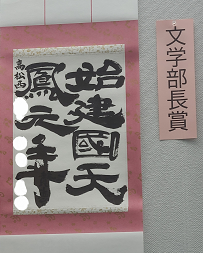 始建國天
鳳元年
高松西
文学部長賞